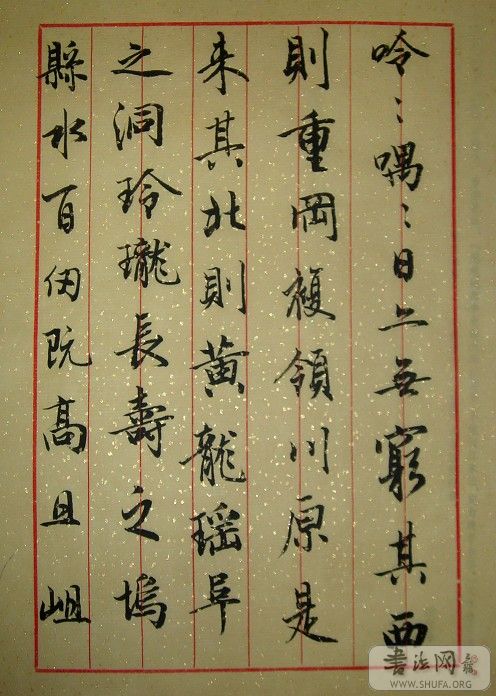 呤〻喁〻日无窮其西
則重岡複領川原是
来其北則黄龍瑶阜
之洞玲瓏長壽之塢
縣水百仞既高且岨
書法网
WWW.SHUFA.ORG